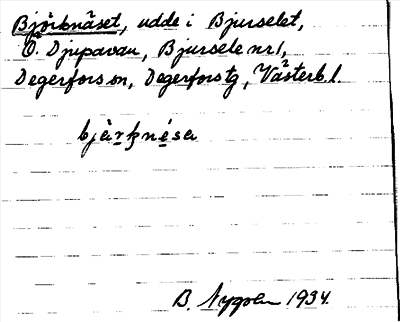 Björknäset, udde i Bjurselet,
Ö. Djupavan, Bjursele nr 1,
Degerfors sn, Degerfors tg, Västerb. l.
bjärknésa
B. Nygren 1934.